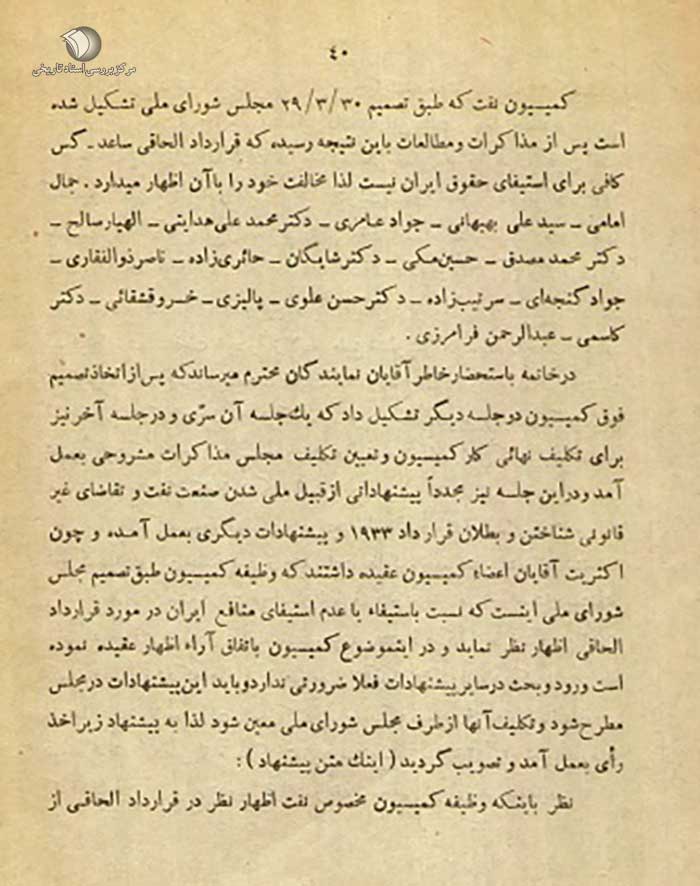 مرکز بررسی اسناد تاریخی
٤٠
کمیسیون نفت که طبق تصمیم ۲۹/۳/۳۰ مجلس شورای ملی تشکیل شده
است پس از مذاکرات ومطالعات باین نتیجه رسیده که قرارداد الحاقی ساعد ـ گس
کافی برای استیفای حقوق ایران نیست لذا مخالفت خود را باآن اظهار میدارد . جمال
امامی ـ سید علی بهبهانی ـ جواد عامری ـ دکتر محمد علی هدایتی ـ الهیار صالح ـ
دکتر محمد مصدق ـ حسین مکی ـ دکتر شایگان ـ حائری زاده ـ ناصر ذوالفقاری ـ
جواد گنجه‌ای ـ سرتیپ زاده ـ دکتر حسن علوی ـ پالیزی ـ خسرو قشقائی ـ دکتر
کاسمی ـ عبدالرحمن فرامرزی .
درخاتمه باستحضار خاطر آقایان نمایندگان محترم میرساند که پس از اتخاذ تصمیم
فوق کمیسیون دو جلسه دیگر تشکیل داد که یك جلسه آن سرّی و درجلسه آخر نیز
برای تکلیف نهائی کار کمیسیون و تعیین تکلیف مجلس مذاکرات مشروحی بعمل
آمد و دراین جلسه نیز مجدداً پیشنهاداتی از قبیل ملی شدن صنعت نفت و تقاضای غیر
قانونی شناختن و بطلان قرارداد ۱۹۳۳ و پیشنهادات دیگری بعمل آمده و چون
اکثریت آقایان اعضاء کمیسیون عقیده داشتند که وظیفه کمیسیون طبق تصمیم مجلس
شورای ملی اینست که نسبت باستیفاء یا عدم استیفای منافع ایران در مورد قرارداد
الحاقی اظهار نظر نماید و در اینموضوع کمیسیون باتفاق آراء اظهار عقیده نموده
است ورود و بحث درسایر پیشنهادات فعلا ضرورتی ندارد و باید این پیشنهادات درمجلس
مطرح شود و تکلیف آنها ازطرف مجلس شورای ملی معین شود لذا به پیشنهاد زیر اخذ
رأی بعمل آمد و تصویب گردید ( اینك متن پیشنهاد ) :
نظر باینکه وظیفه کمیسیون مخصوص نفت اظهار نظر در قرارداد الحاقی از